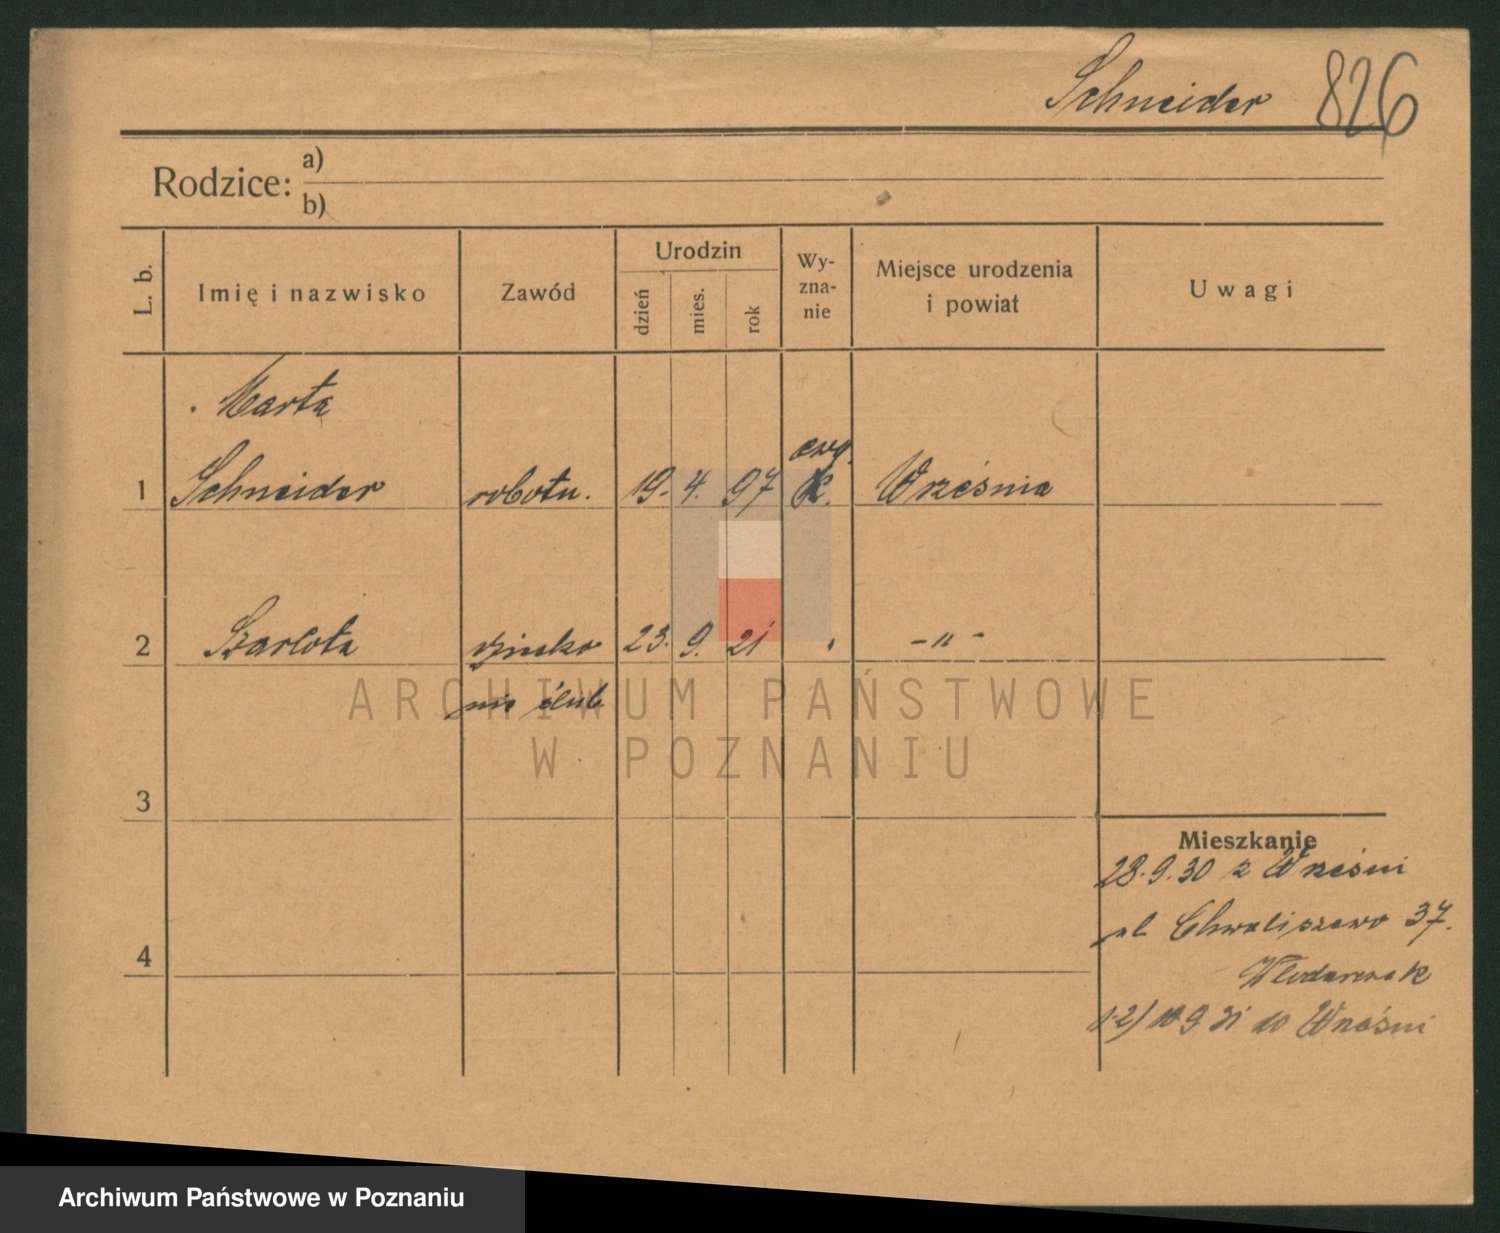 Schneider 826
Rodzice: a)
b)
L. b. Imię i nazwisko Zawód Urodzin dzień mies. rok Wy-zna-nie Miejsce urodzenia i powiat Uwagi
Marta
1 Schneider robotn. 19. 4. 97 ewg. k. Września
2 Szarlota dziecko 23. 9. 21 " - " -
nie ślub
ARCHIWUM PAŃSTWOWE
W POZNANIU
3
Mieszkanie
28.9.30 z Wrześni
ul Chwaliszewo 37.
4
Włodarczak
1-2) 10 9 31 do Wrześni
Archiwum Państwowe w Poznaniu